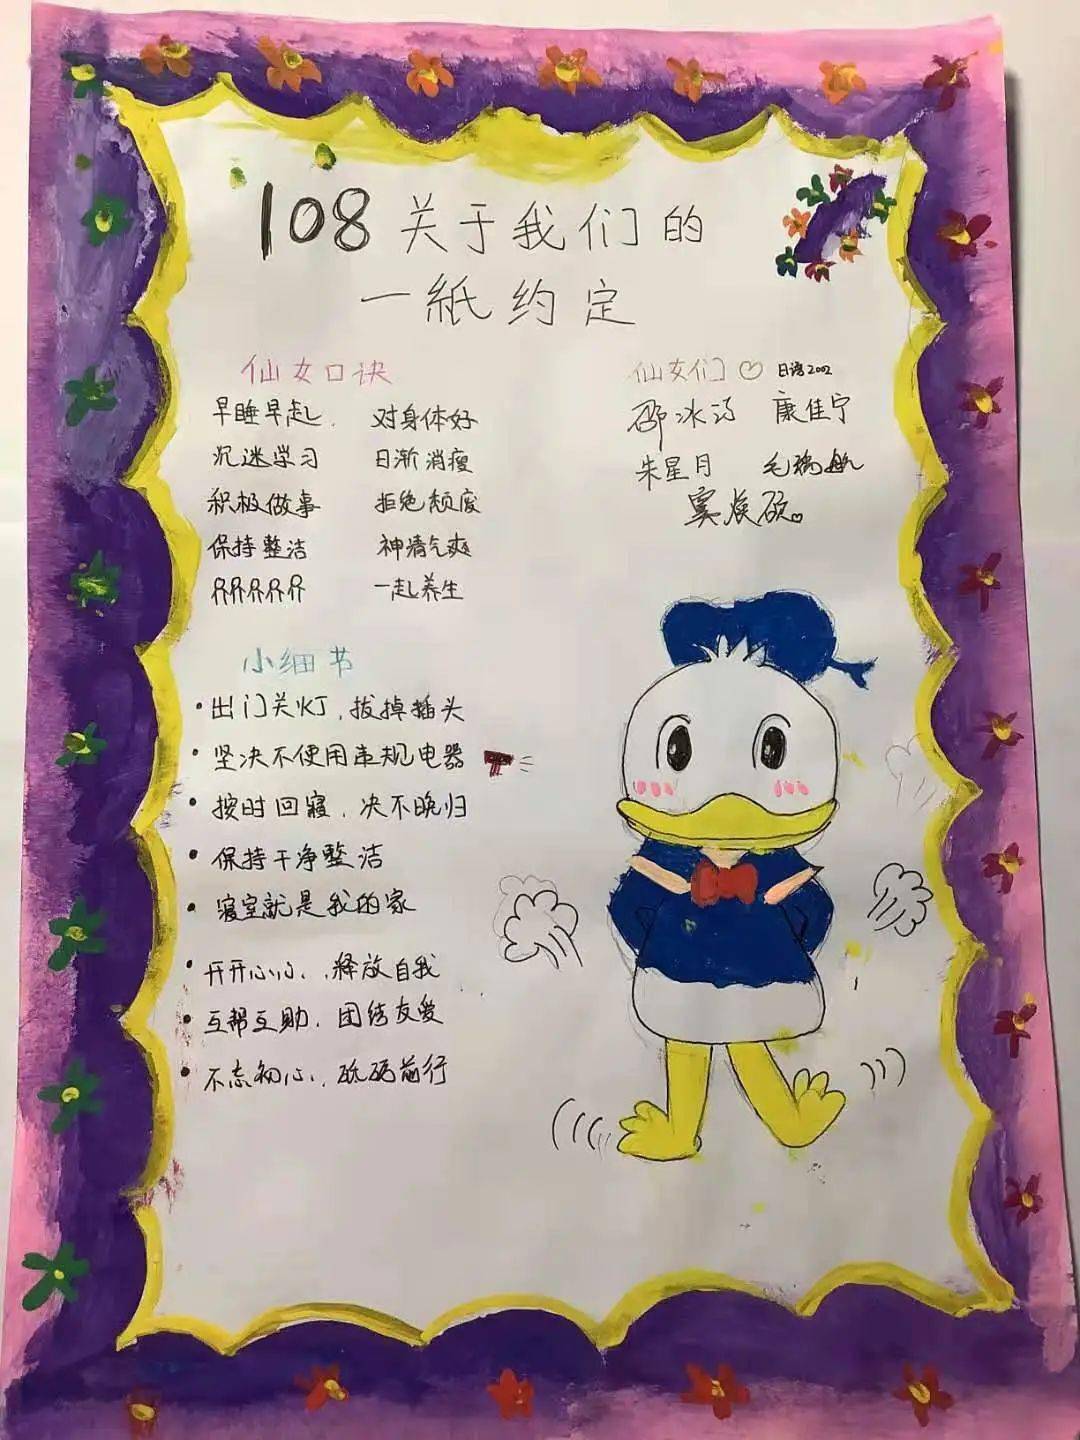 108 关于我们的
一紙约定
仙女口诀
早睡早起. 对身体好
沉迷学习 日渐消瘦
积极做事 拒绝颓废
保持整洁 神清气爽
一起养生
小细节
• 出门关灯,拔掉插头
• 坚决不使用违规电器
• 按时回寝,决不晚归
• 保持干净整洁
• 寝室就是我的家
• 开开心心,释放自我
• 互帮互助,团结友爱
• 不忘初心,砥砺前行
仙女们♡ 日语2002
邵冰 康佳宁
朱星月 毛瑞航
窦